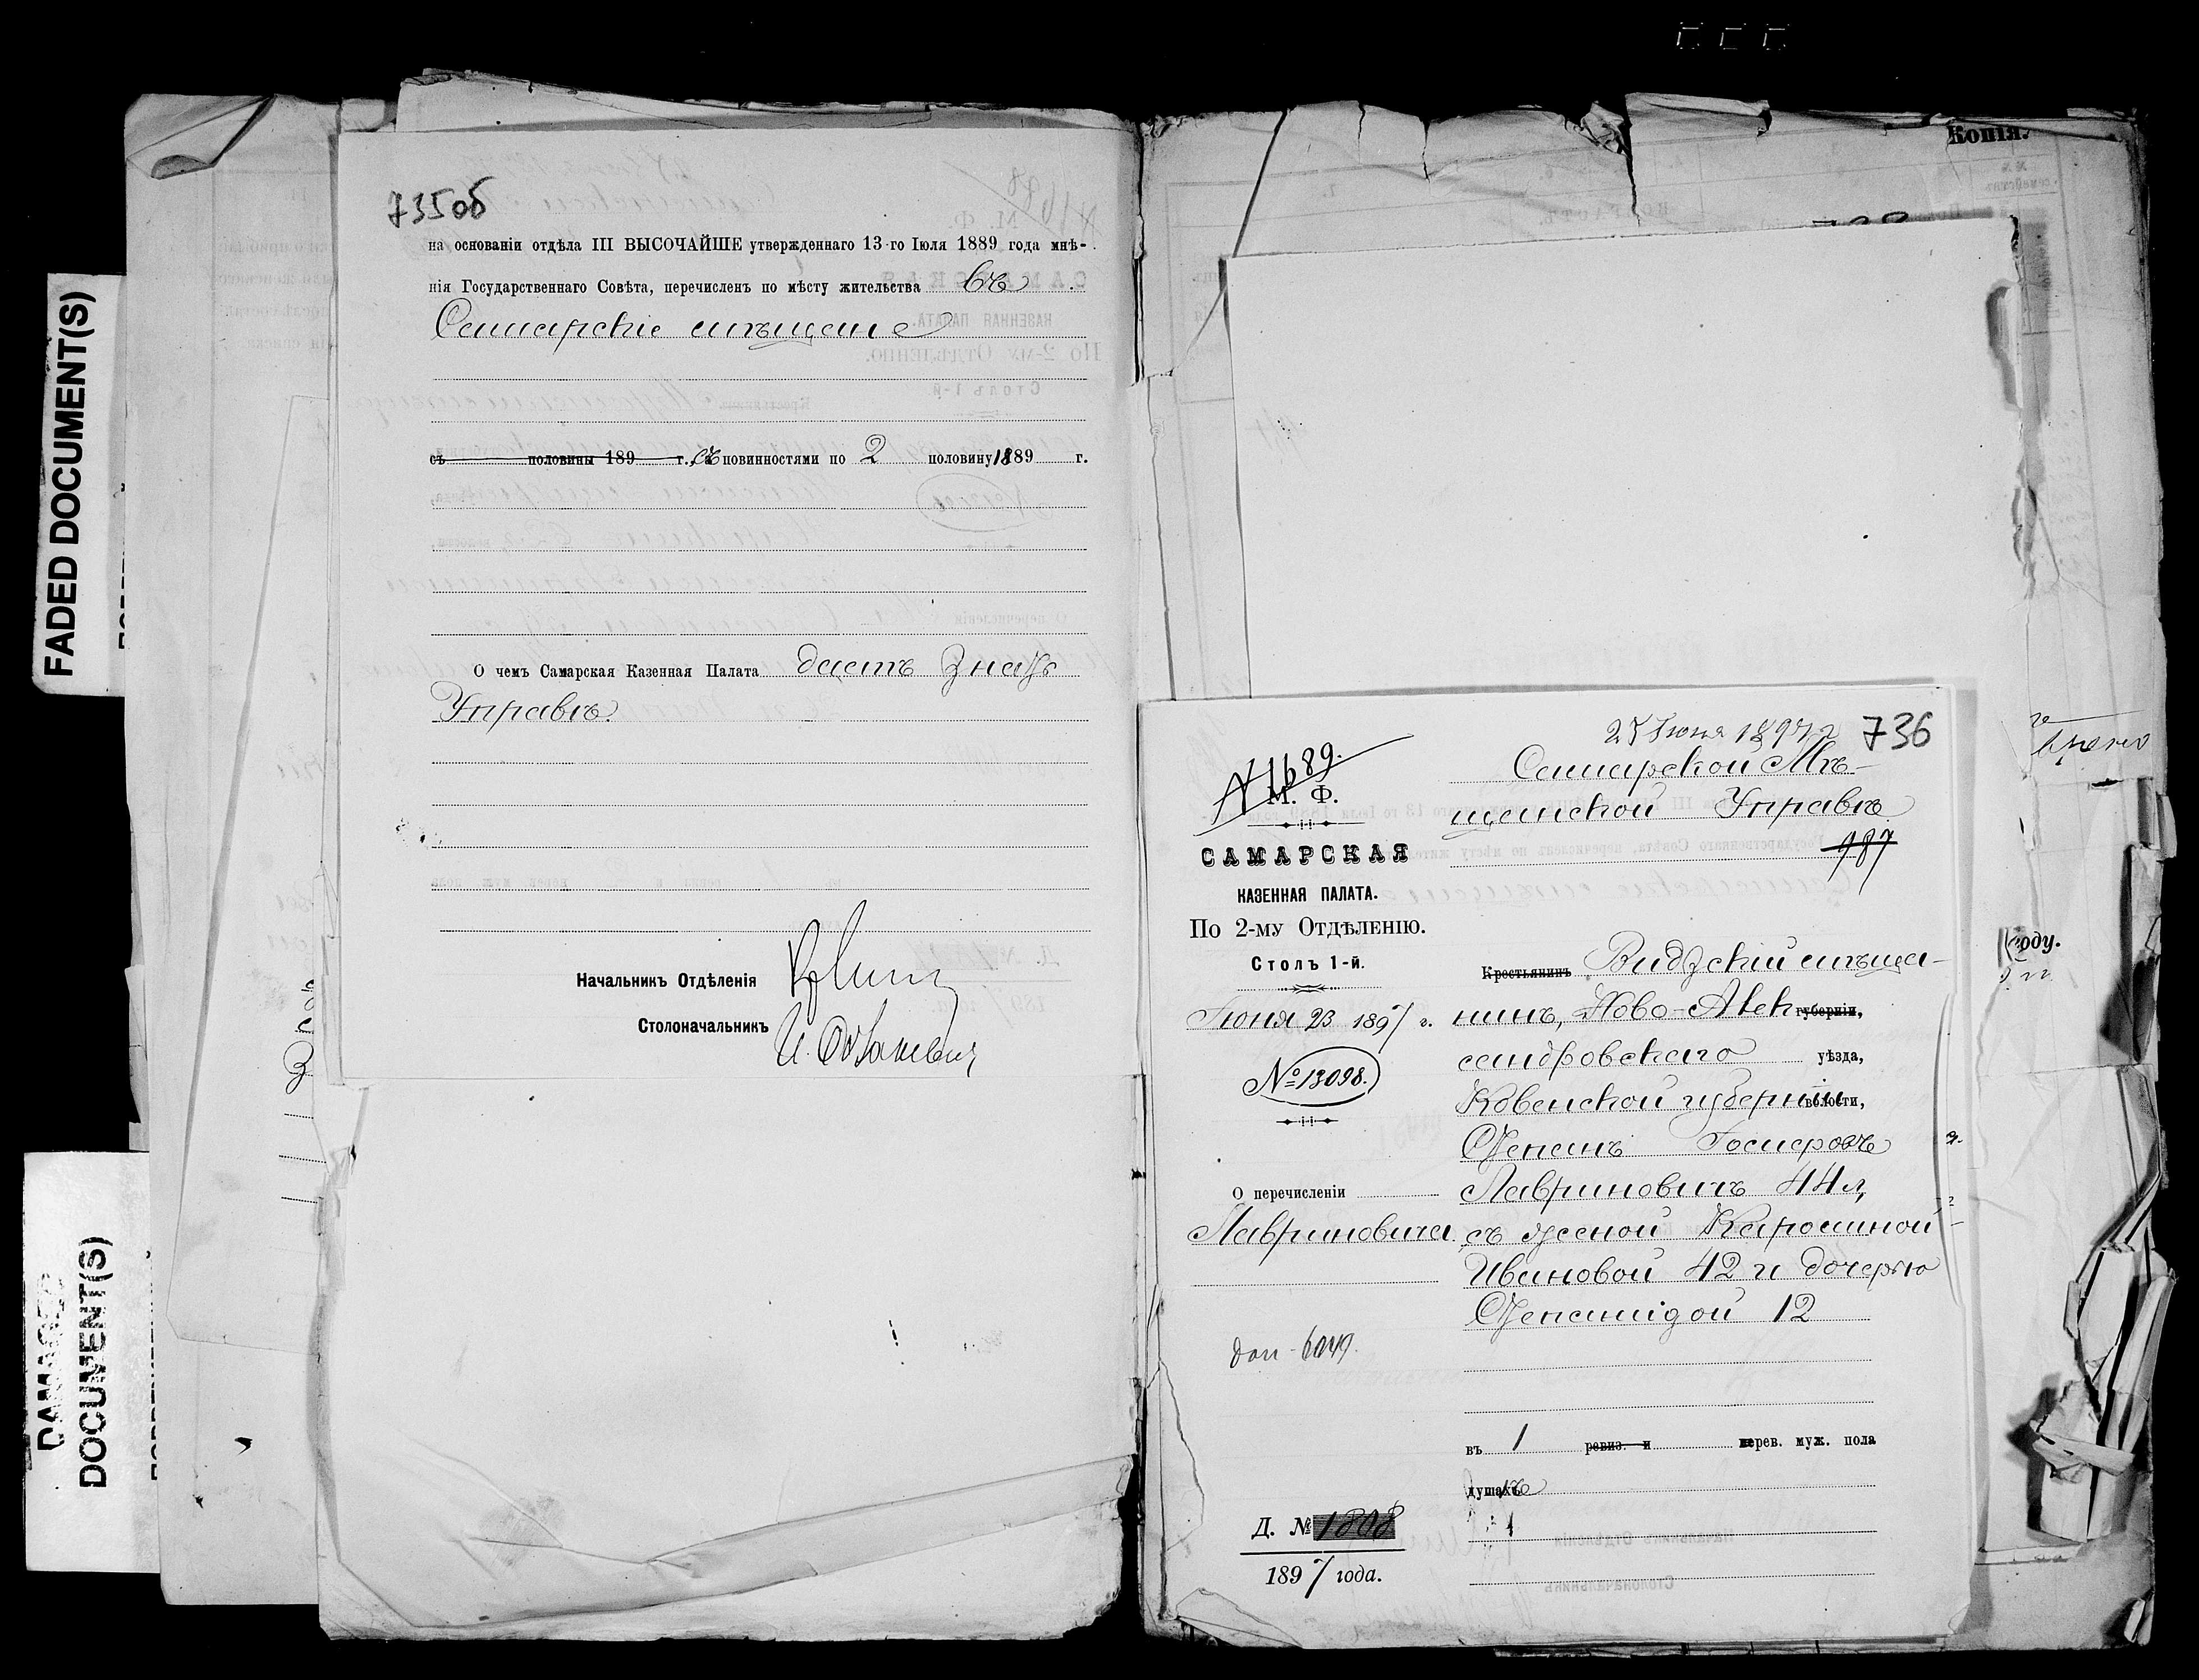 FADED DOCUMENT(S)
DAMAGED
DOCUMENT(S)
735об
на основаніи отдѣла III ВЫСОЧАЙШЕ утвержденнаго 13-го Іюля 1889 года мнѣ-
нія Государственнаго Совѣта, перечисленъ по мѣсту жительства въ
Самарскіе мѣщане
съ половины 189 г., съ повинностями по 2 половину 1889 г.
О чемъ Самарская Казенная Палата даетъ знать
Управѣ.
Начальникъ Отдѣленія
Столоначальникъ
Копія.
25 Іюня 1897 г
736
№ 1689.
М. Ф.
САМАРСКАЯ
КАЗЕННАЯ ПАЛАТА.
По 2-му Отдѣленію.
Столъ 1-й.
Іюня 23 1897 г.
№ 13098.
О перечисленіи
Лавриновича.
Д. № 1808
1897 года.
Самарской Мѣ-
щанской Управѣ
987
Крестьянинъ Видзскій мѣща-
нинъ, Ново-Алек губерніи,
сандровскаго уѣзда,
Ковенской губерніи волости,
Степанъ
Лавриновичъ 44 л,
съ женой Каролиной
Ивановой 42 и дочерью
12
въ 1 ревиз. и перев. муж. пола
душахъ
году.